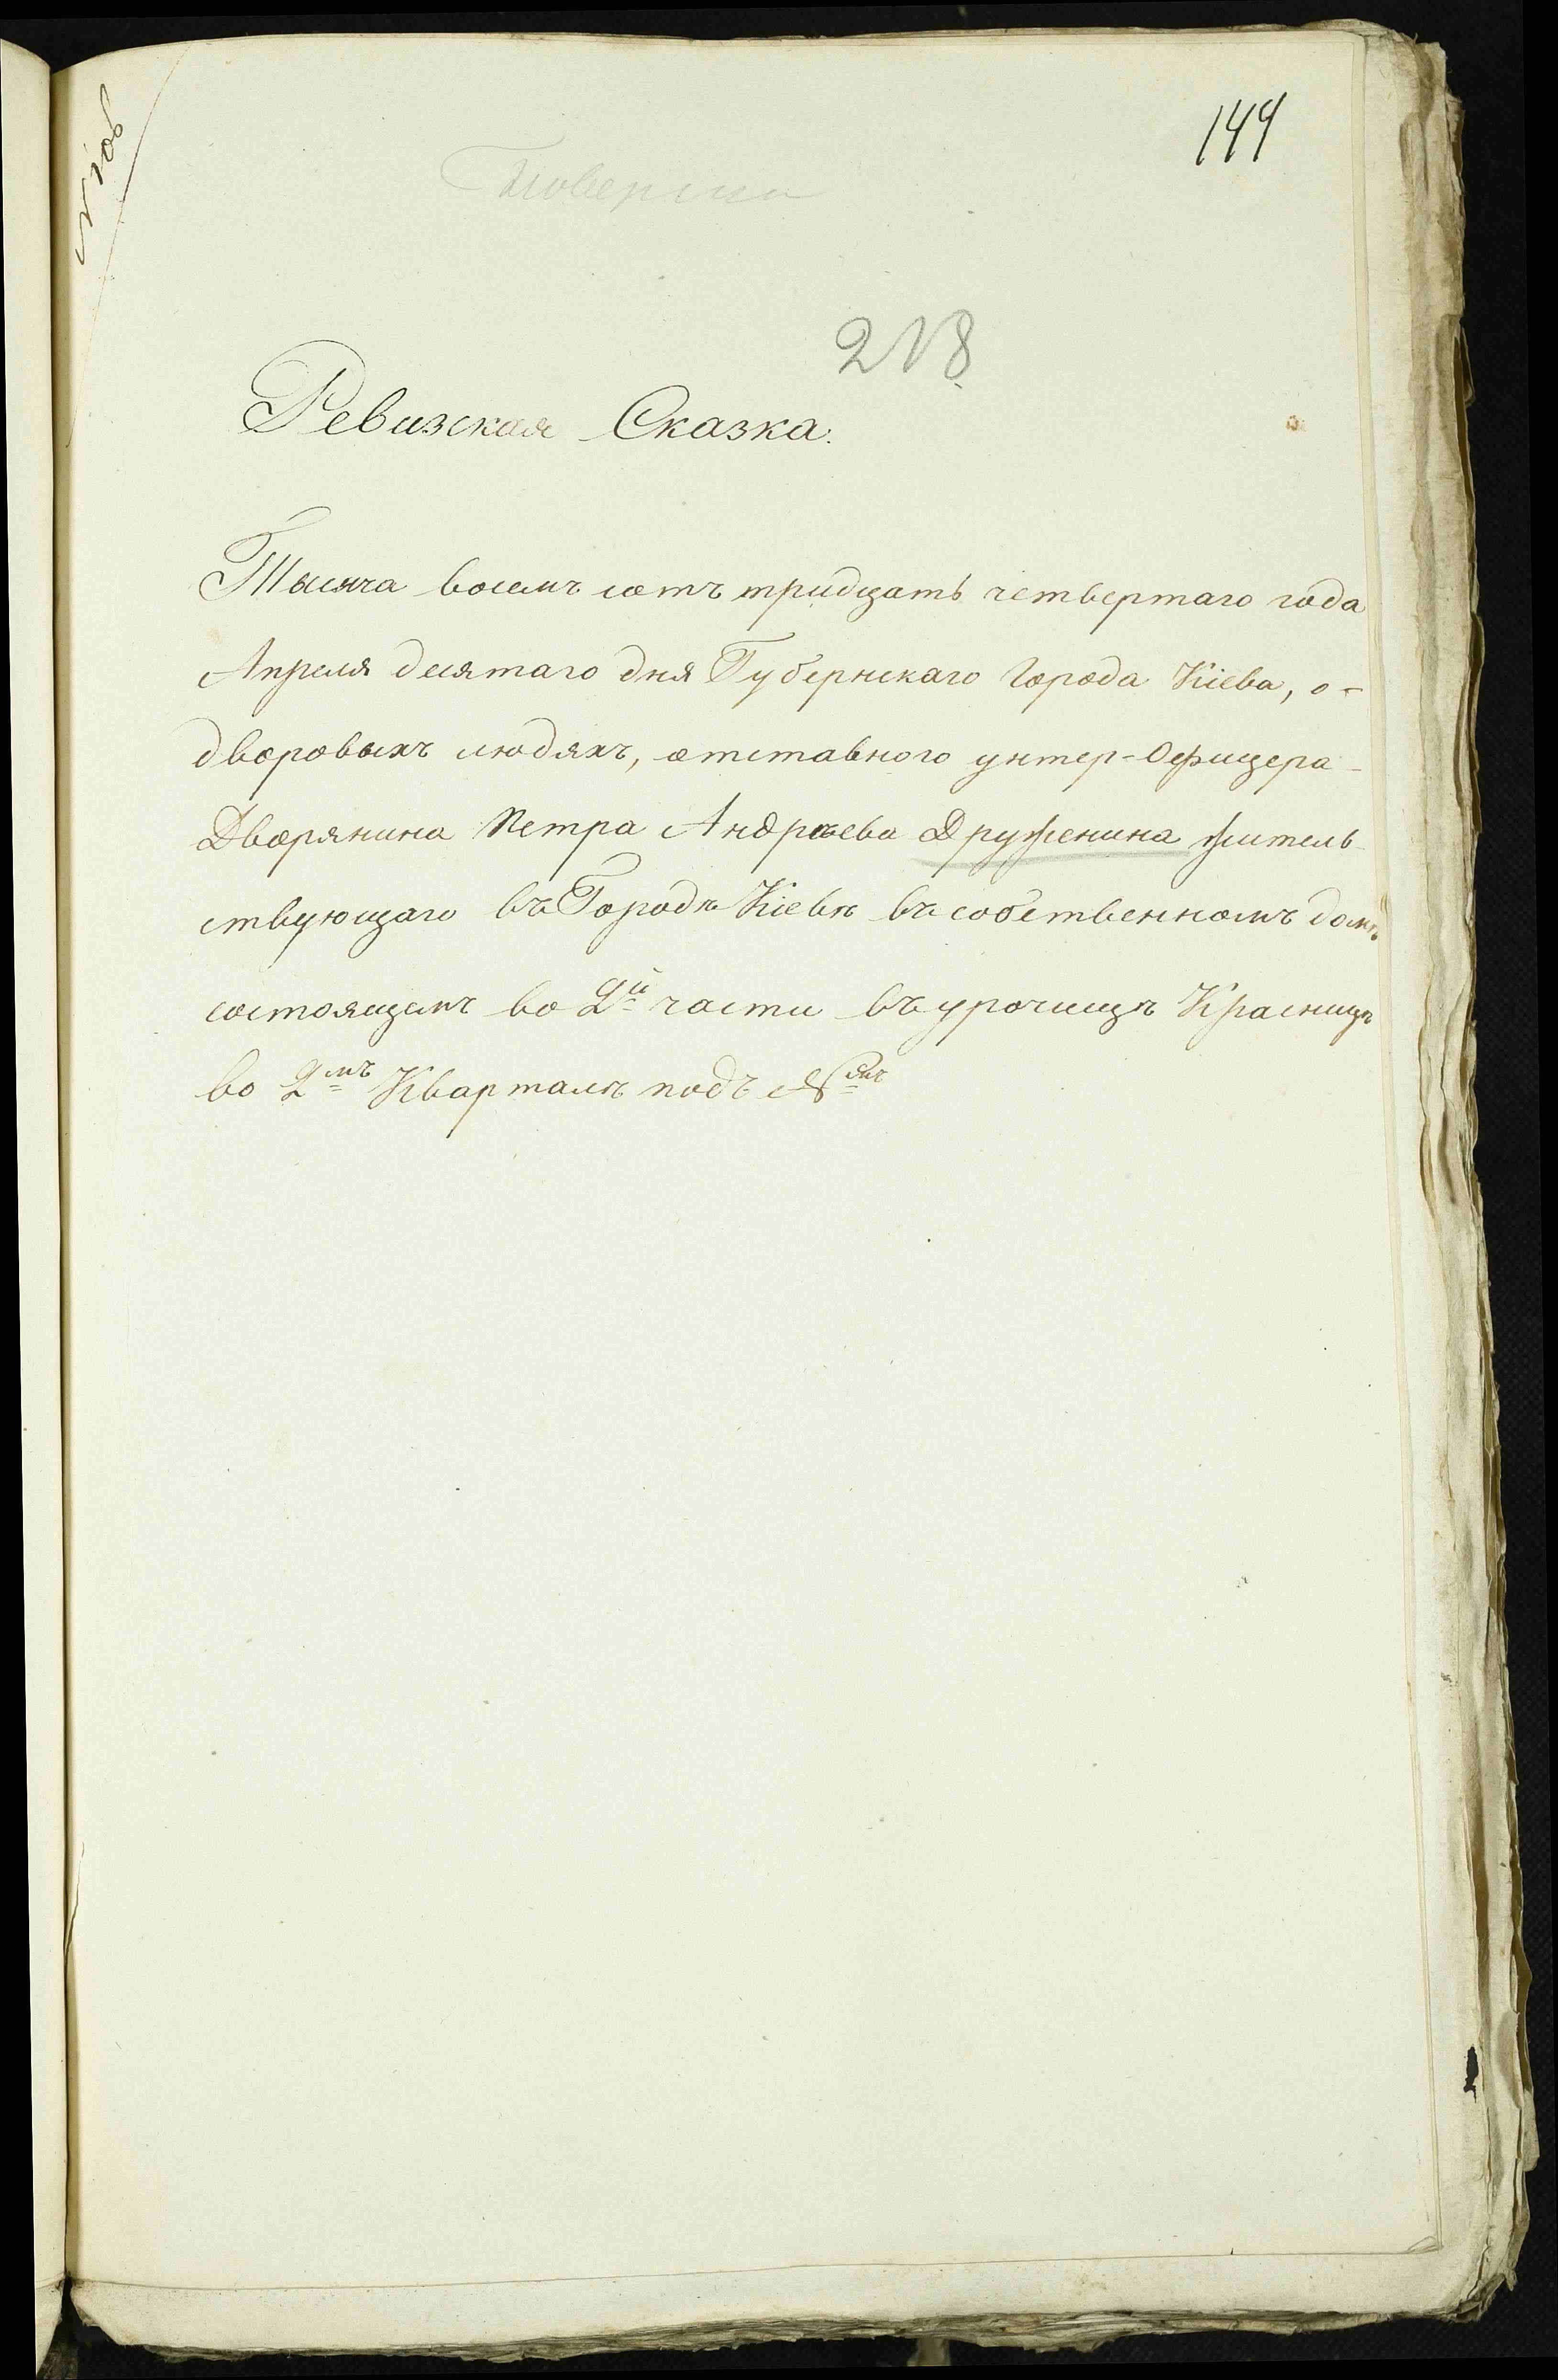 144
Поверена
218
Ревизская Сказка.
Тысяча восемъ сотъ тридцать четвертаго года
Апреля десятаго дня Губернскаго Города Кіева, о-
дворовыхъ людяхъ, отставного унтер-Офицера-
Дворянина Петра Андрѣева Друженина житель-
ствующаго въ Городѣ Кіевѣ въ собственномъ домѣ
состоящемъ во 2й части въ урочищѣ Красницѣ
во 2мъ Кварталѣ подъ №мъ